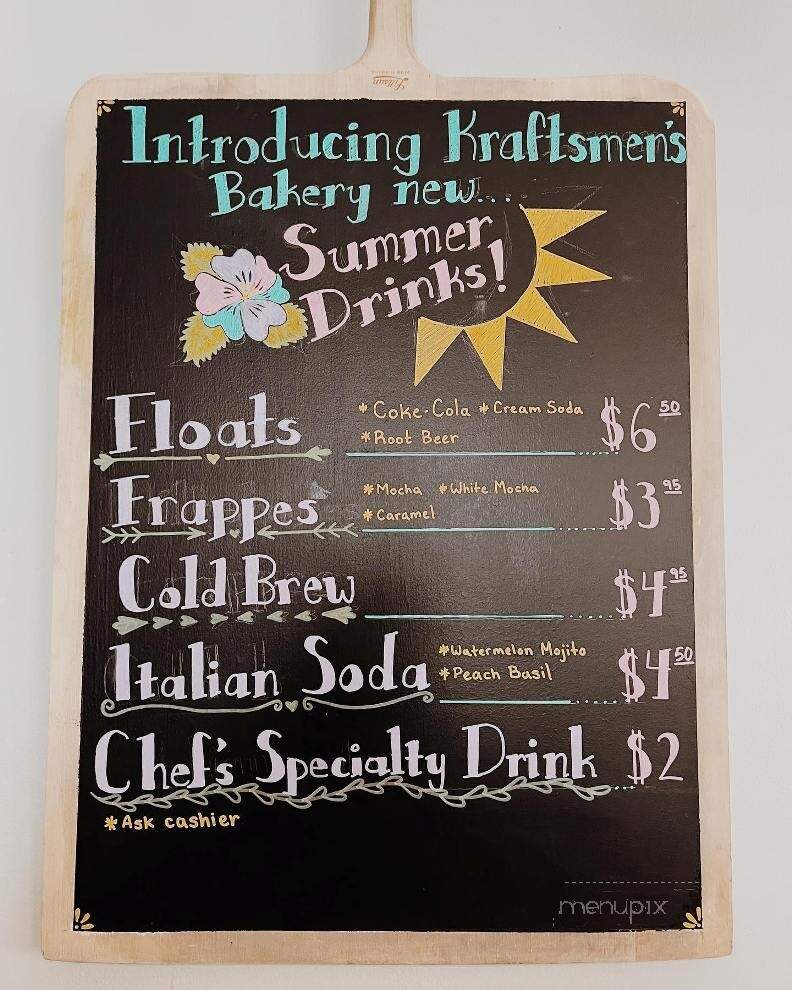 Introducing Kraftsmen's
Bakery new...
Summer
Drinks!
Floats *Coke-Cola *Cream Soda $6 50
*Root Beer
Frappes *Mocha *White Mocha $3 95
*Caramel
Cold Brew $4 95
Italian Soda *Watermelon Mojito $4 50
*Peach Basil
Chef's Specialty Drink $2
*Ask cashier
menupix